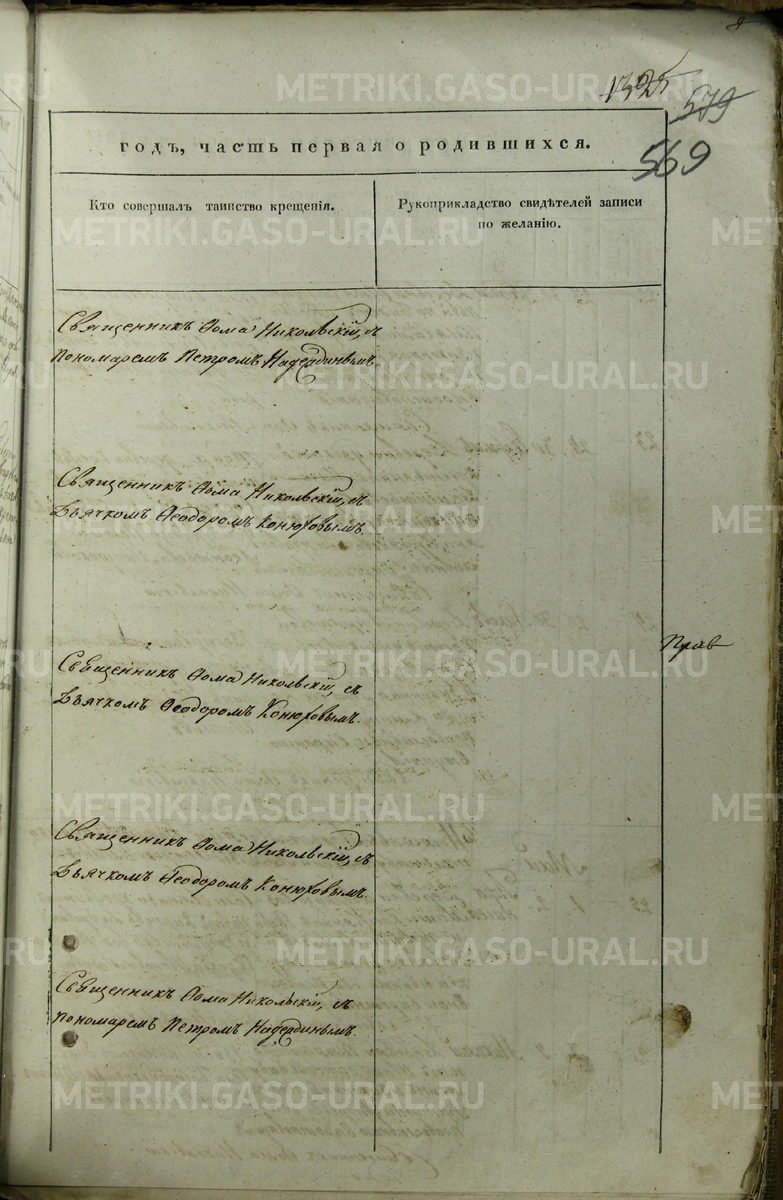 1325
579
569
годъ, часть первая о родившихся.
Кто совершалъ таинство крещенія.
Рукоприкладство свидѣтелей записи
по желанію.
Священникъ Ѳома Никольскій, съ
пономаремъ Петромъ Надеединымъ.
Священникъ Ѳома Никольскій, съ
дьячкомъ Ѳеодоромъ Конюховымъ.
Прав
Священникъ Ѳома Никольскій, съ
дьячкомъ Ѳеодоромъ Конюховымъ.
Священникъ Ѳома Никольскій, съ
дьячкомъ Ѳеодоромъ Конюховымъ.
Священникъ Ѳома Никольскій, съ
пономаремъ Петромъ
METRIKI.GASO-URAL.RU